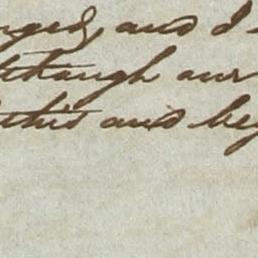 and I
although our
this and beg